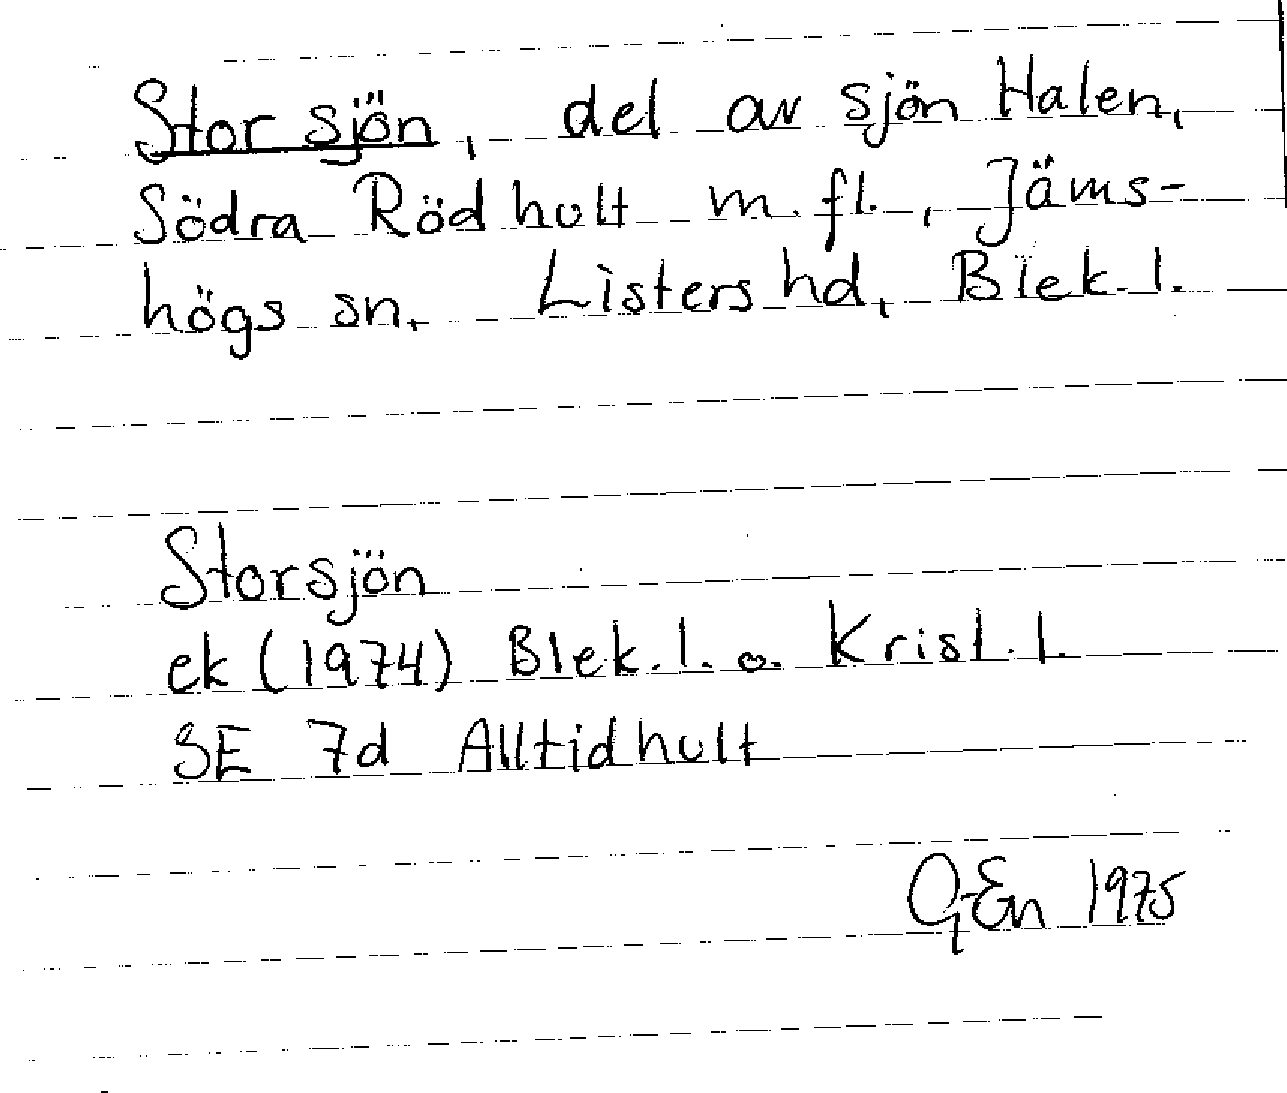 Storsjön, del av sjön Halen,
Södra Rödhult m.fl., Jäms-
högs sn. Listers hd, Blek.l.
Storsjön
ek (1974) Blek.l. o. Krist.l.
3E 7d Alltidhult
GEn 1975